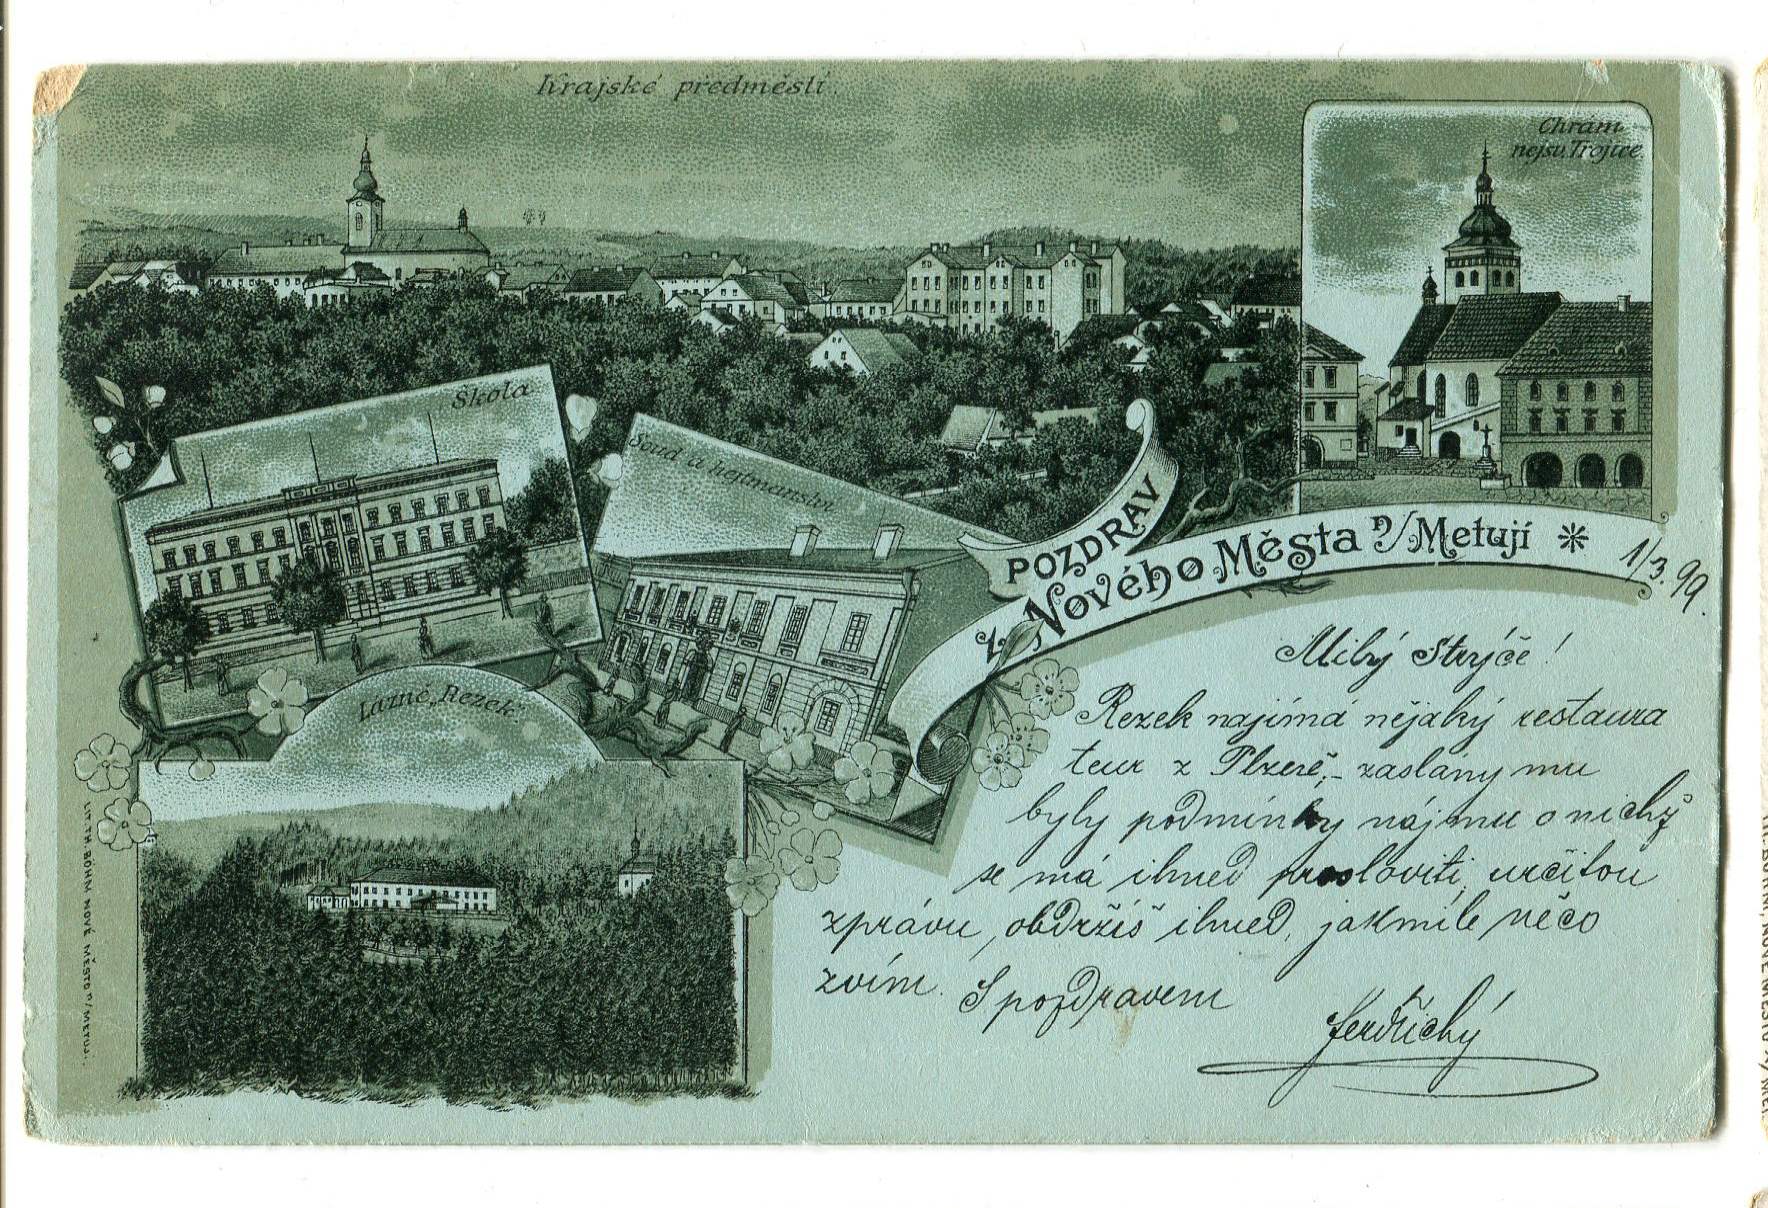 Krajské předměstí.
Chrám
nejsv. Trojice.
Škola
Soud a hejtmanství
Lázně „Rezek“
POZDRAV
z Nového Města n/Metují
1/3. 99.
Milý Strýče!
Rezek najímá nějaký restaura
teur z Plzeně, – zaslány mu
byly podmínky nájmu o nichž
se má ihned prosloviti, určitou
zprávu, obdržíš ihned, jakmile něco
zvím. S pozdravem
LIT. TH. BÖHM NOVÉ MĚSTO n/METUJ.